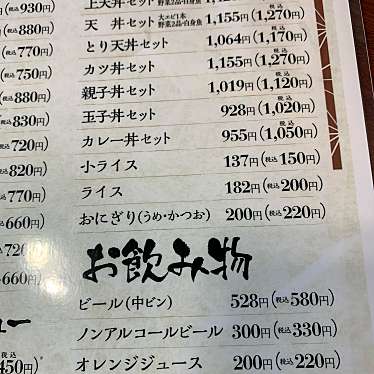 税込930円)
税込880円)
税込770円)
税込750円)
税込880円)
税込830円)
税込720円)
税込820円)
税込770円)
660円)
726
660円)
ュー
税込
450円)
上天丼セット 野菜2品・白身魚 1,155円(税込1,270円)
天 丼セット 大エビ1本 野菜2品・白身魚 1,155円(税込1,270円)
とり天丼セット 1,064円(税込1,170円)
カツ丼セット 1,155円(税込1,270円)
親子丼セット 1,019円(税込1,120円)
玉子丼セット 928円(税込1,020円)
カレー丼セット 955円(税込1,050円)
小ライス 137円(税込150円)
ライス 182円(税込200円)
おにぎり(うめ・かつお) 200円(税込220円)
お飲み物
ビール(中ビン) 528円(税込580円)
ノンアルコールビール 300円(税込330円)
オレンジジュース 200円(税込220円)